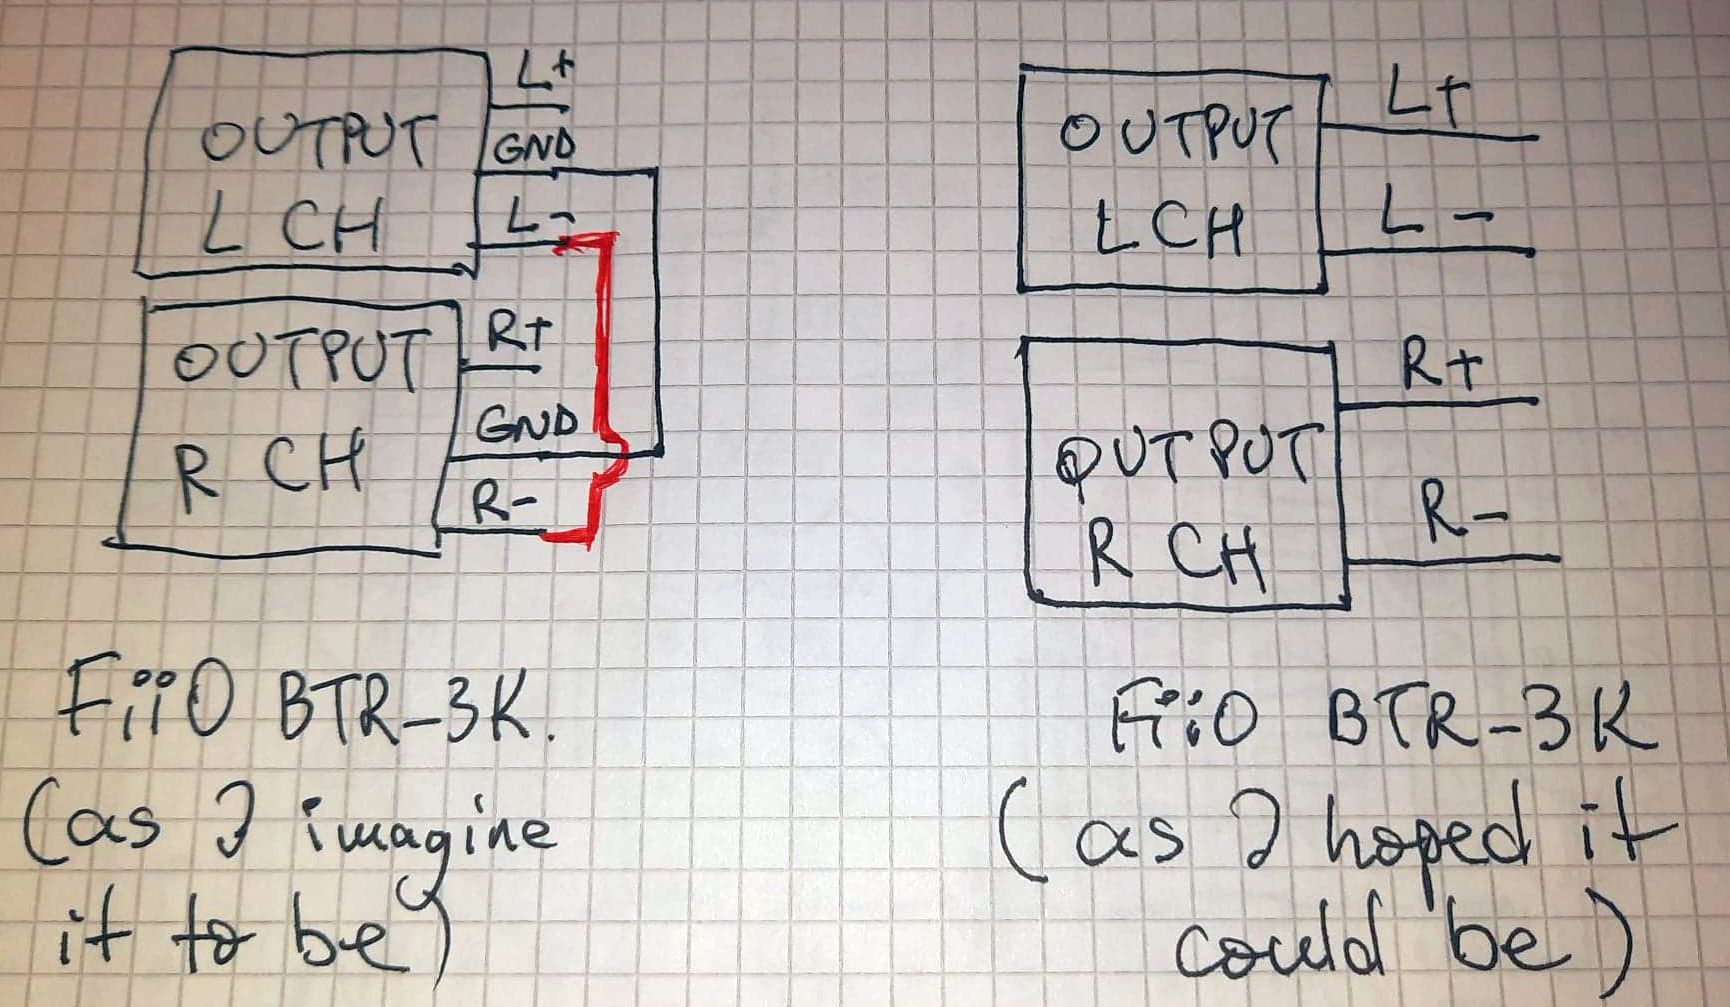 L+
OUTPUT GND
L CH L-
R+
OUTPUT
GND
R CH
R-
FiiO BTR-3K.
(as I imagine
it to be)
L+
OUTPUT
L CH L-
R+
OUTPUT
R-
R CH
FiiO BTR-3K
(as I hoped it
could be)